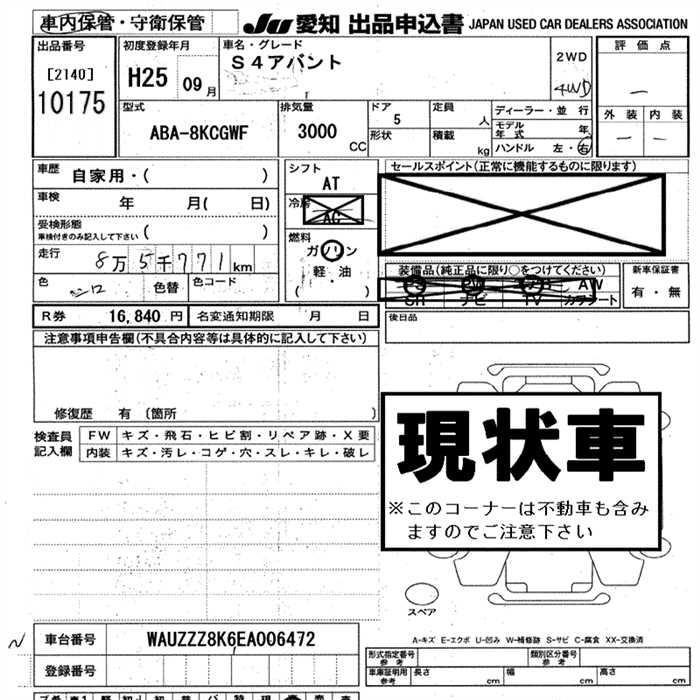 車内保管・守衛保管
JU 愛知 出品申込書 JAPAN USED CAR DEALERS ASSOCIATION
出品番号
[2140]
10175
初度登録年月
H25 09 月
車名・グレード
S4アバント
2WD
4WD
評価点
—
型式
ABA-8KCGWF
排気量
3000 CC
ドア
5
形状
定員
人
積載
kg
ディーラー・並行
モデル年式 年
ハンドル 左・右
外装 内装
— —
車歴 自家用・( )
車検 年 月( 日)
受検形態
車検付きのみ記入して下さい ( )
走行 8万5千771km
色 シロ 色替 色コード
シフト
AT
冷房
AC
燃料
ガソリン
軽・油
( )
セールスポイント(正常に機能するものに限ります)
装備品(純正品に限り○をつけてください)
PS PW AB AW
SR ナビ TV カワシート
新車保証書
有・無
R券 16,840 円 名変通知期限 月 日
後日品
注意事項申告欄(不具合内容等は具体的に記入して下さい)
修復歴 有 〔箇所 〕
検査員記入欄
FW キズ・飛石・ヒビ割・リペア跡・X要
内装 キズ・汚レ・コゲ・穴・スレ・キレ・破レ
現状車
※このコーナーは不動車も含み
ますのでご注意下さい
スペア
A-キズ E-エクボ U-凹み W-補修跡 S-サビ C-腐食 XX-交換済
車台番号 WAUZZZ8K6EA006472
登録番号
形式指定番号
参考
類別区分番号
参考
車庫証明用
参考
長さ cm 幅 cm 高さ cm